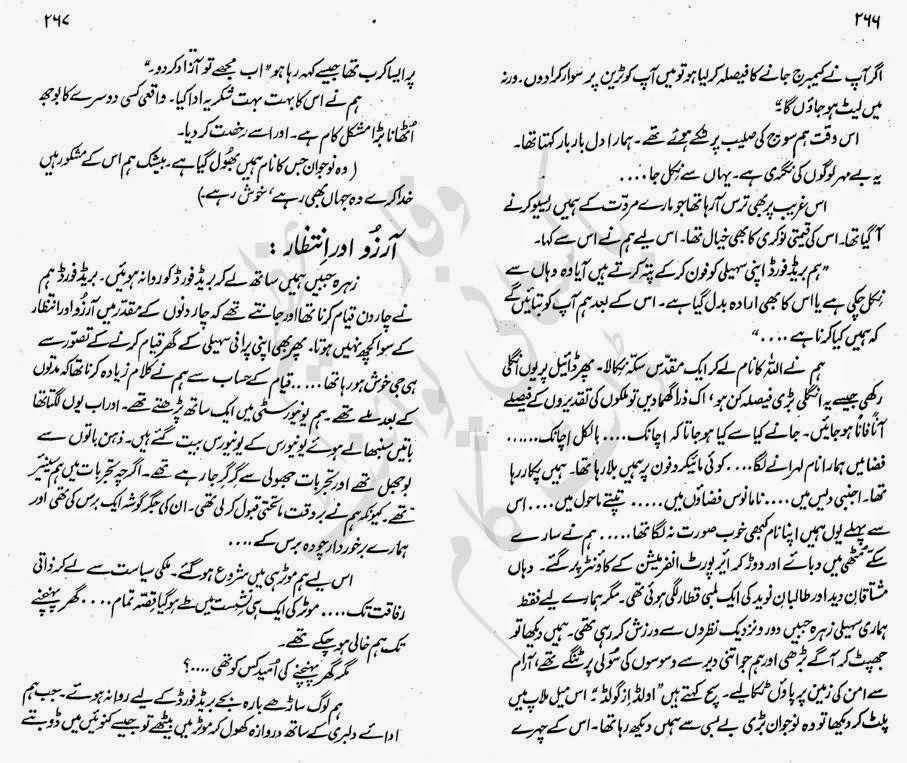 ۲۶۶
اگر آپ نے کیمبرج جانے کا فیصلہ کر لیا ہو تو میں آپ کو ٹرین پر سوار کرا دوں۔ ورنہ
میں لیٹ ہو جاؤں گا۔"
اس وقت ہم سوچ کی صلیب پر ٹنگے ہوئے تھے۔ ہمارا دل بار بار کہتا تھا۔
یہ بے مہر لوگوں کی نگری ہے۔ یہاں سے نکل جا....
اس غریب پر بھی ترس آ رہا تھا جو مارے مروّت کے ہمیں ریسیو کرنے
آ گیا تھا۔ اس کی قیمتی نوکری کا بھی خیال تھا۔ اس لیے ہم نے اس سے کہا۔
"ہم بریڈ فورڈ اپنی سہیلی کو فون کر کے پتہ کرتے ہیں آیا وہ وہاں سے
نکل چکی ہے یا اس کا بھی ارادہ بدل گیا ہے۔ اس کے بعد ہم آپ کو بتائیں گے
کہ ہمیں کیا کرنا ہے...."
ہم نے اللہ کا نام لے کر ایک مقدّس سکّہ نکالا۔ پھر ڈائیل پر یوں انگلی
رکھی جیسے یہ انگلی بڑی فیصلہ کن ہو، اک ذرا گھما دیں تو ملکوں کی تقدیروں کے فیصلے
آناً فاناً ہو جائیں۔ جانے کیا سے کیا ہو جاتا کہ اچانک.... بالکل اچانک......
فضا میں ہمارا نام لہرانے لگا.... کوئی مائیکروفون پر ہمیں بلا رہا تھا۔ ہمیں پکار رہا
تھا۔ اجنبی دیس میں.... نامانوس فضاؤں میں..... تپتے ماحول میں.... اس
سے پہلے یوں ہمیں اپنا نام کبھی خوب صورت نہ لگا تھا..... ہم نے سارے
سکّے مٹھی میں دبائے اور دوڑ کر ائیرپورٹ انفرمیشن کے کاؤنٹر پر گئے۔ وہاں
مشتاقانِ دید اور طالبانِ نوید کی ایک لمبی قطار لگی ہوئی تھی۔ مگر ہمارے لیے فقط
ہماری سہیلی زہرہ جبیں دور و نزدیک نظروں سے ورزش کر رہی تھی۔ ہمیں دیکھا تو
جھپٹ کر آگے بڑھی اور ہم جو اتنی دیر سے وسوسوں کی سولی پر ٹنگے تھے، آرام
سے امن کی زمین پر پاؤں ٹکا لیے۔ سچ کہتے ہیں "اولڈ از گولڈ"۔ اس میل ملاپ میں
پلٹ کر دیکھا تو وہ نوجوان بڑی بے بسی سے ہمیں دیکھ رہا تھا۔ اس کے چہرے
۲۶۷
پر ایسا کرب تھا جیسے کہہ رہا ہو "اب مجھے تو آزاد کر دو۔"
ہم نے اس کا بہت بہت شکریہ ادا کیا۔ واقعی کسی دوسرے کا بوجھ
اُٹھانا بڑا مشکل کام ہے۔ اور اسے رخصت کر دیا۔
(وہ نوجوان جس کا نام ہمیں بھول گیا ہے۔ بیشک ہم اس کے مشکور ہیں
خدا کرے وہ جہاں بھی رہے، خوش رہے۔)
آرزُو اور انتظار :
زہرہ جبیں ہمیں ساتھ لے کر بریڈ فورڈ کو روانہ ہوئیں۔ بریڈ فورڈ ہم
نے چار دن قیام کرنا تھا اور جانتے تھے کہ چار دنوں کے مقدر میں آرزُو اور انتظار
کے سوا کچھ نہیں ہوتا۔ پھر بھی اپنی پرانی سہیلی کے گھر قیام کرنے کے تصوّر سے
ہی جی خوش ہو رہا تھا..... قیام کے حساب سے ہم نے کلام زیادہ کرنا تھا کہ مدتوں
کے بعد ملے تھے۔ ہم یونیورسٹی میں ایک ساتھ پڑھتے تھے۔ اور اب یوں لگتا تھا
باتیں سنبھالے ہوئے یونیورس کے یونیورس بیت گئے ہیں۔ ذہن باتوں سے
بوجھل تھے اور تجربات جھولی سے گر گر جا رہے تھے۔ اگرچہ تجربات میں ہم سینئر
تھے۔ کیونکہ ہم نے بر وقت ماتحتی قبول کر لی تھی۔ ان کی جگر گوشہ ایک برس کی تھی اور
ہمارے برخوردار چودہ برس کے....
اس لیے ہم موٹر ہی میں شروع ہو گئے۔ ملکی سیاست سے لے کر ذاتی
رفاقت تک.... موٹر کی ایک ہی نشست میں طے ہو گیا قصّہ تمام.... گھر پہنچنے
تک ہم خالی ہو چکے تھے۔
مگر گھر پہنچنے کی اُمید کس کو تھی....؟
ہم لوگ ساڑھے بارہ بجے بریڈ فورڈ کے لیے روانہ ہوئے۔ جب ہم
ادائے دلبری کے ساتھ دروازہ کھول کر موٹر میں بیٹھے تو جیسے کنویں میں ڈوبتے